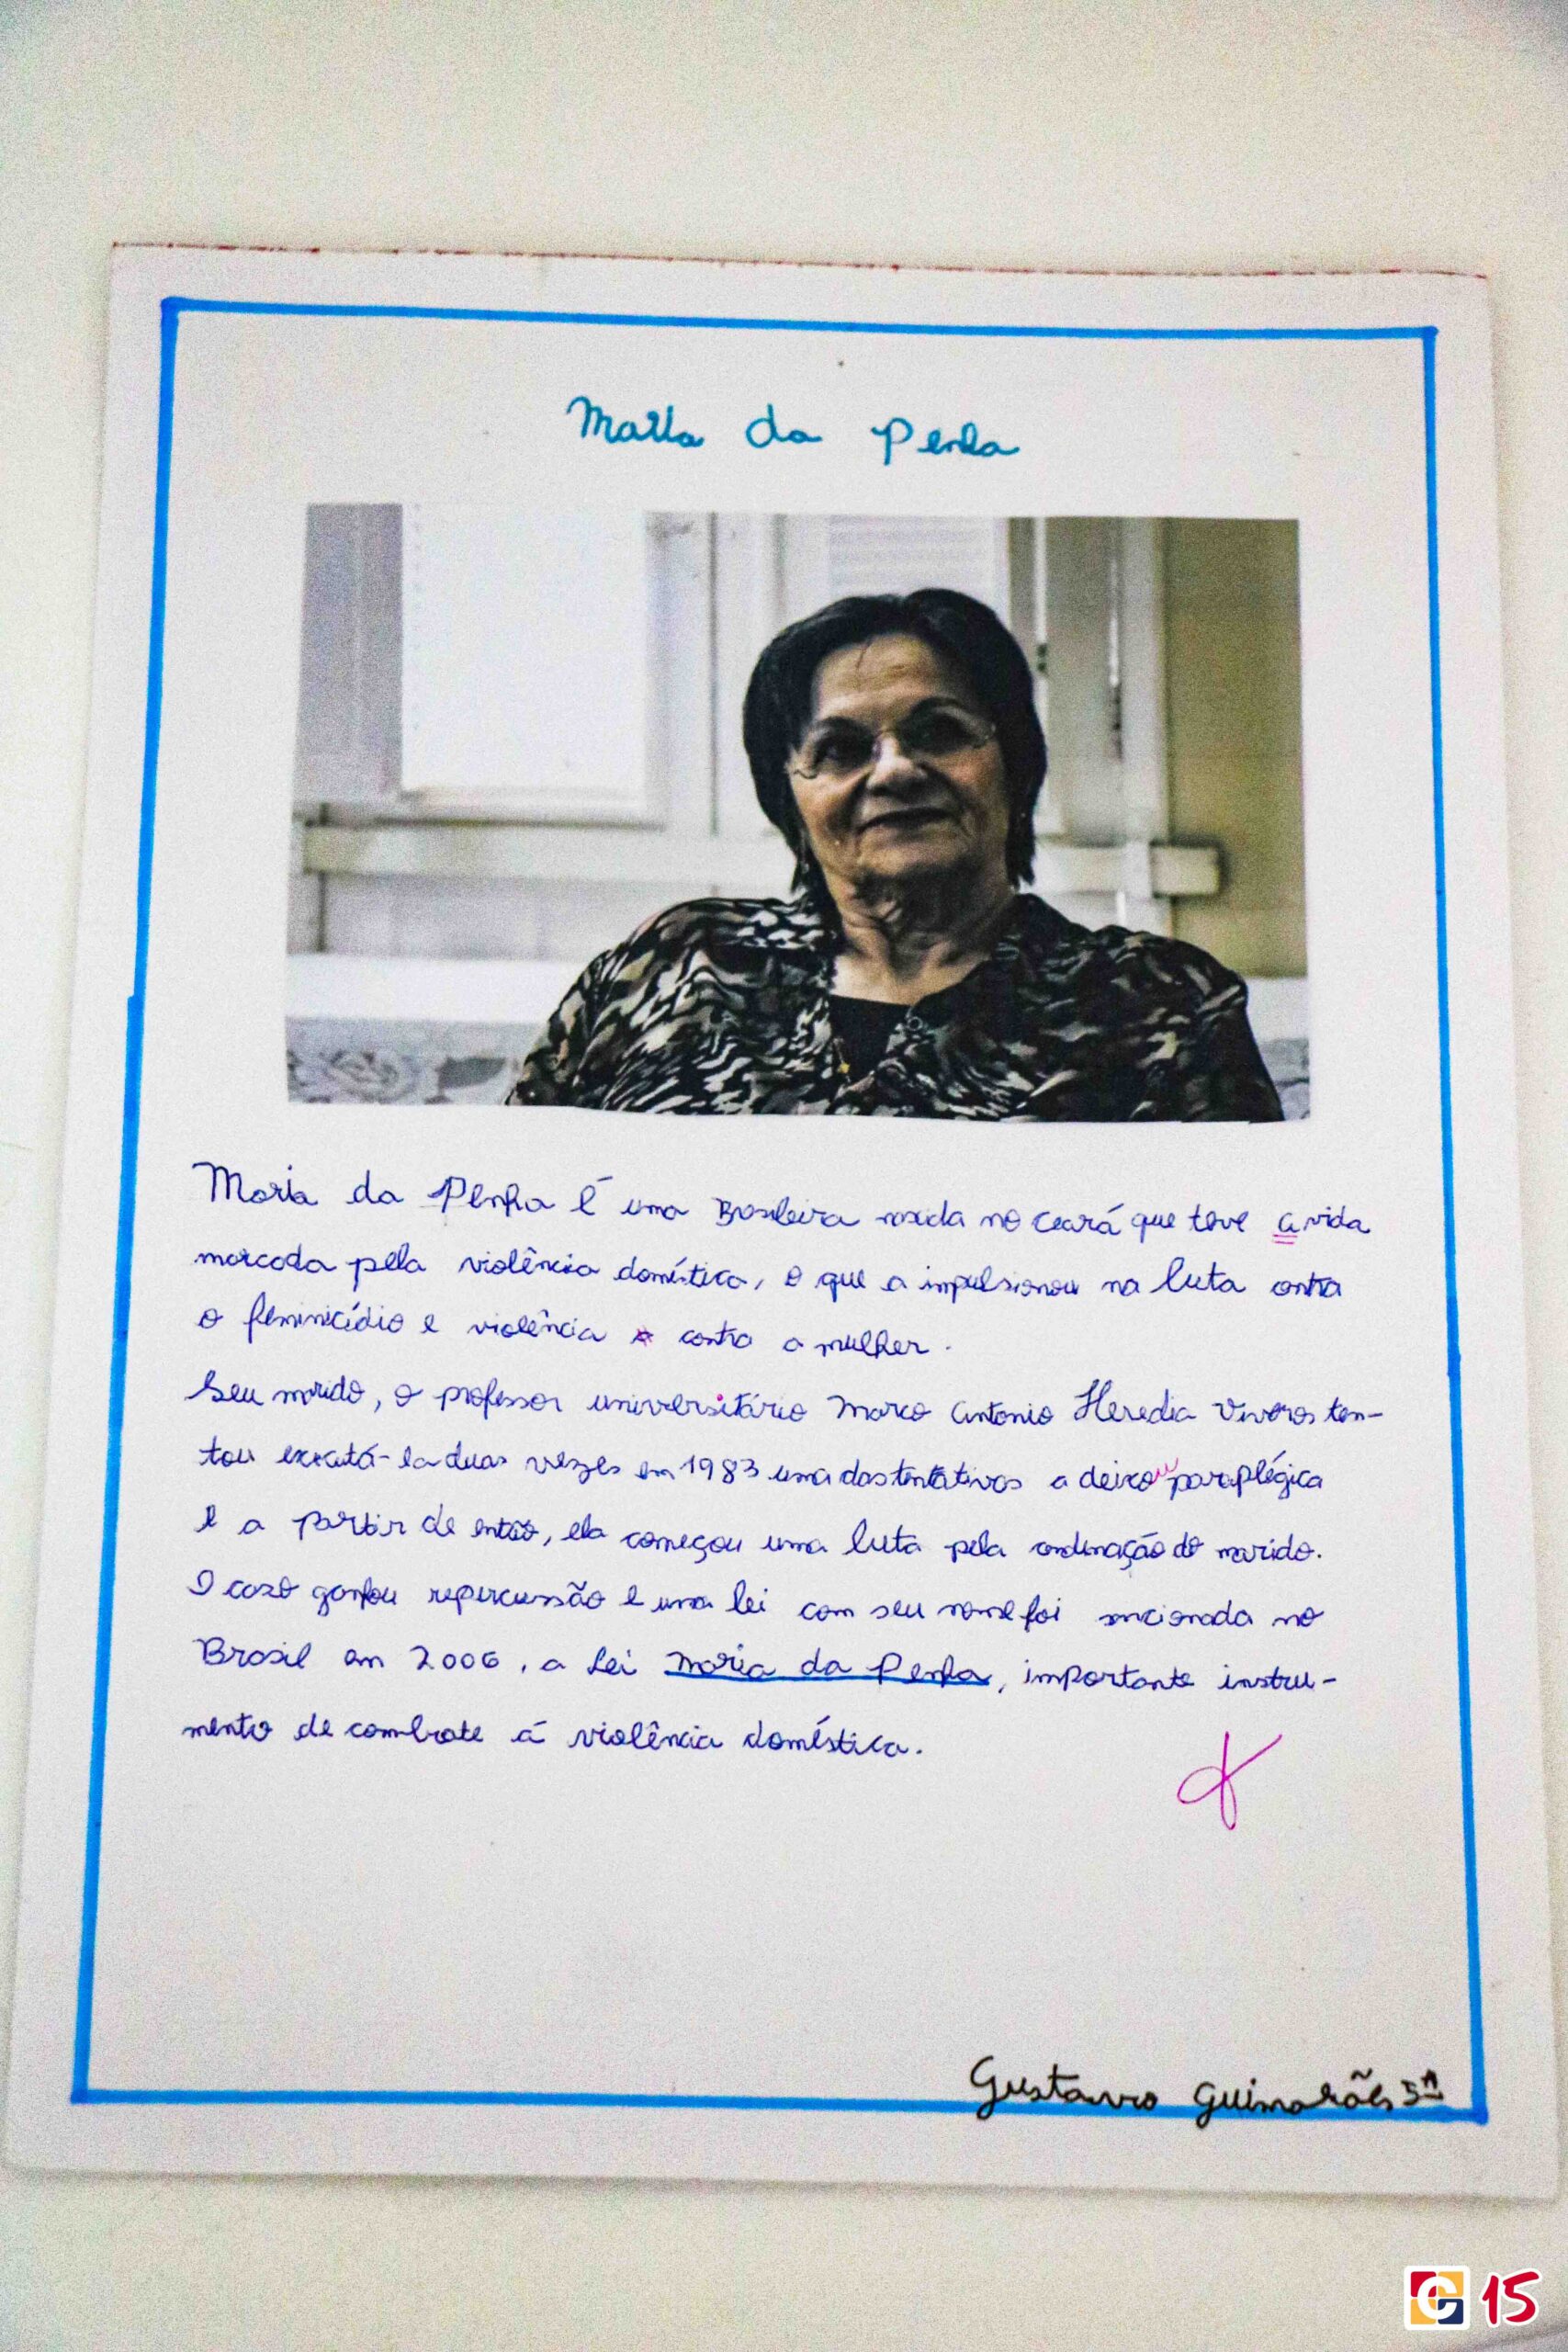 Maria da Penha
Maria da Penha é uma Brasileira nascida no Ceará que teve a vida
marcada pela violência doméstica, o que a impulsionou na luta contra
o feminicídio e violência contra a mulher.
Seu marido, o professor universitário Marco Antonio Heredia Viveros ten-
tou executá-la duas vezes em 1983 uma das tentativas a deixou paraplégica
e a partir de então, ela começou uma luta pela condenação do marido.
O caso ganhou repercussão e uma lei com seu nome foi sancionada no
Brasil em 2006, a Lei Maria da Penha, importante instru-
mento de combate á violência doméstica.
Gustavo Guimarães 5º
15